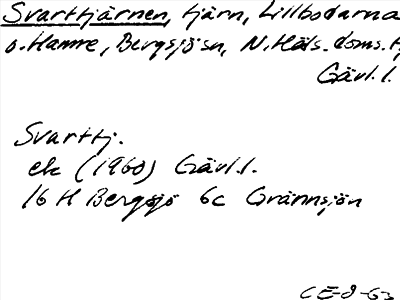 Svarttjärnen, tjärn, Lillbodarna
o. Hamre, Bergsjösn, N. Häls. doms.
Gävl. l.
Svarttj.
ek (1960) Gävl. l.
16 H Bergsjö 6c Grännsjön
CE-8-63